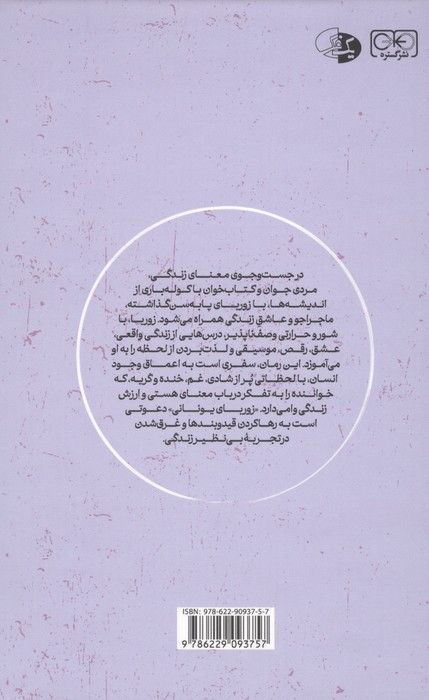 نشر گستره
در جست‌وجوی معنای زندگی،
مردی جوان و کتاب‌خوان با کوله‌باری از
اندیشه‌ها، با زوربای پا‌به‌سن‌گذاشته،
ماجراجو و عاشق زندگی همراه می‌شود. زوربا، با
شور و حرارتی وصف‌ناپذیر، درس‌هایی از زندگی واقعی،
عشق، رقص، موسیقی و لذت‌بردن از لحظه را به او
می‌آموزد. این رمان، سفری است به اعماق وجود
انسان، با لحظاتی پُر از شادی، غم، خنده و گریه، که
خواننده را به تفکر در باب معنای هستی و ارزش
زندگی وامی‌دارد. «زوربای یونانی» دعوتی
است به رهاکردن قیدوبندها و غرق‌شدن
در تجربهٔ بی‌نظیر زندگی.
ISBN: 978-622-90937-5-7
9 786229 093757